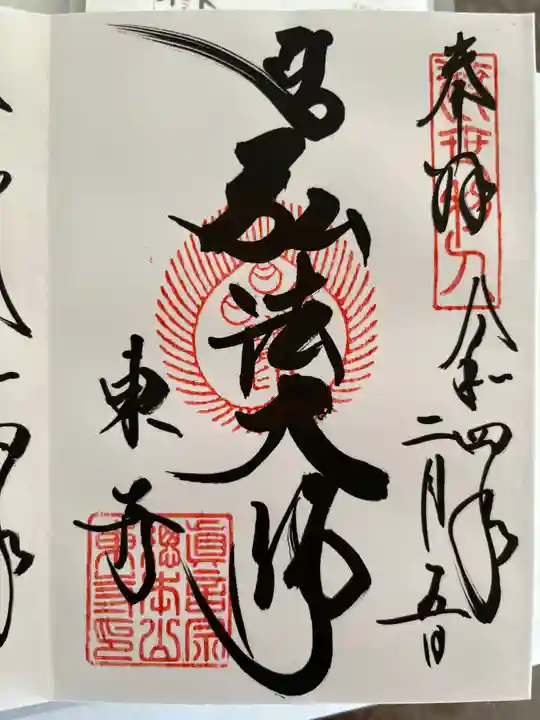 奉拝
令和四年
二月五日
弘法大師
東寺
真言宗
総本山